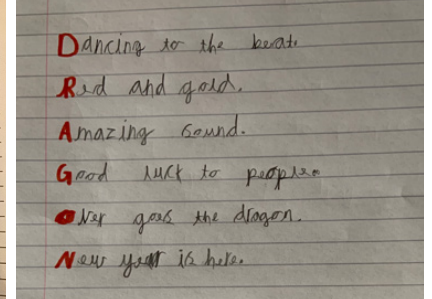 Dancing to the beat.
Red and gold.
Amazing sound.
Good luck to people.
Over goes the dragon.
New year is here.